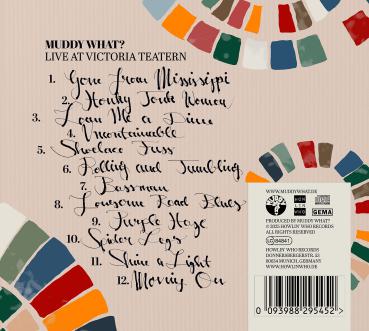 MUDDY WHAT?
LIVE AT VICTORIA TEATERN
1. Gone from Mississippi
2. Honky Tonk Women
3. Loan Me a Dime
4. Unentertainable
5. Shoelace Fuss
6. Rolling and Tumbling
7. Bassman
8. Lonesome Road Blues
9. Purple Haze
10. Spider Legs
11. Shine a Light
12. Moving On
WWW.MUDDYWHAT.DE
HOWLIN WHO
GEMA
PRODUCED BY MUDDY WHAT?
© 2025 HOWLIN' WHO RECORDS
ALL RIGHTS RESERVED
LC 84841
HOWLIN' WHO RECORDS
81054 MUNICH, GERMANY
WWW.HOWLINWHO.DE
0 093988 295452 >